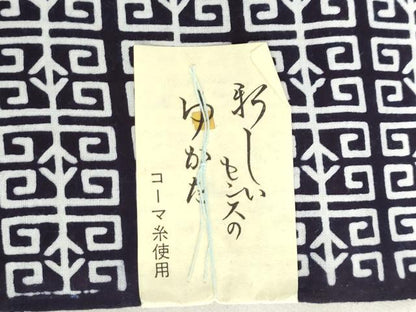 新しい
センスの
ゆかた
コーマ糸使用